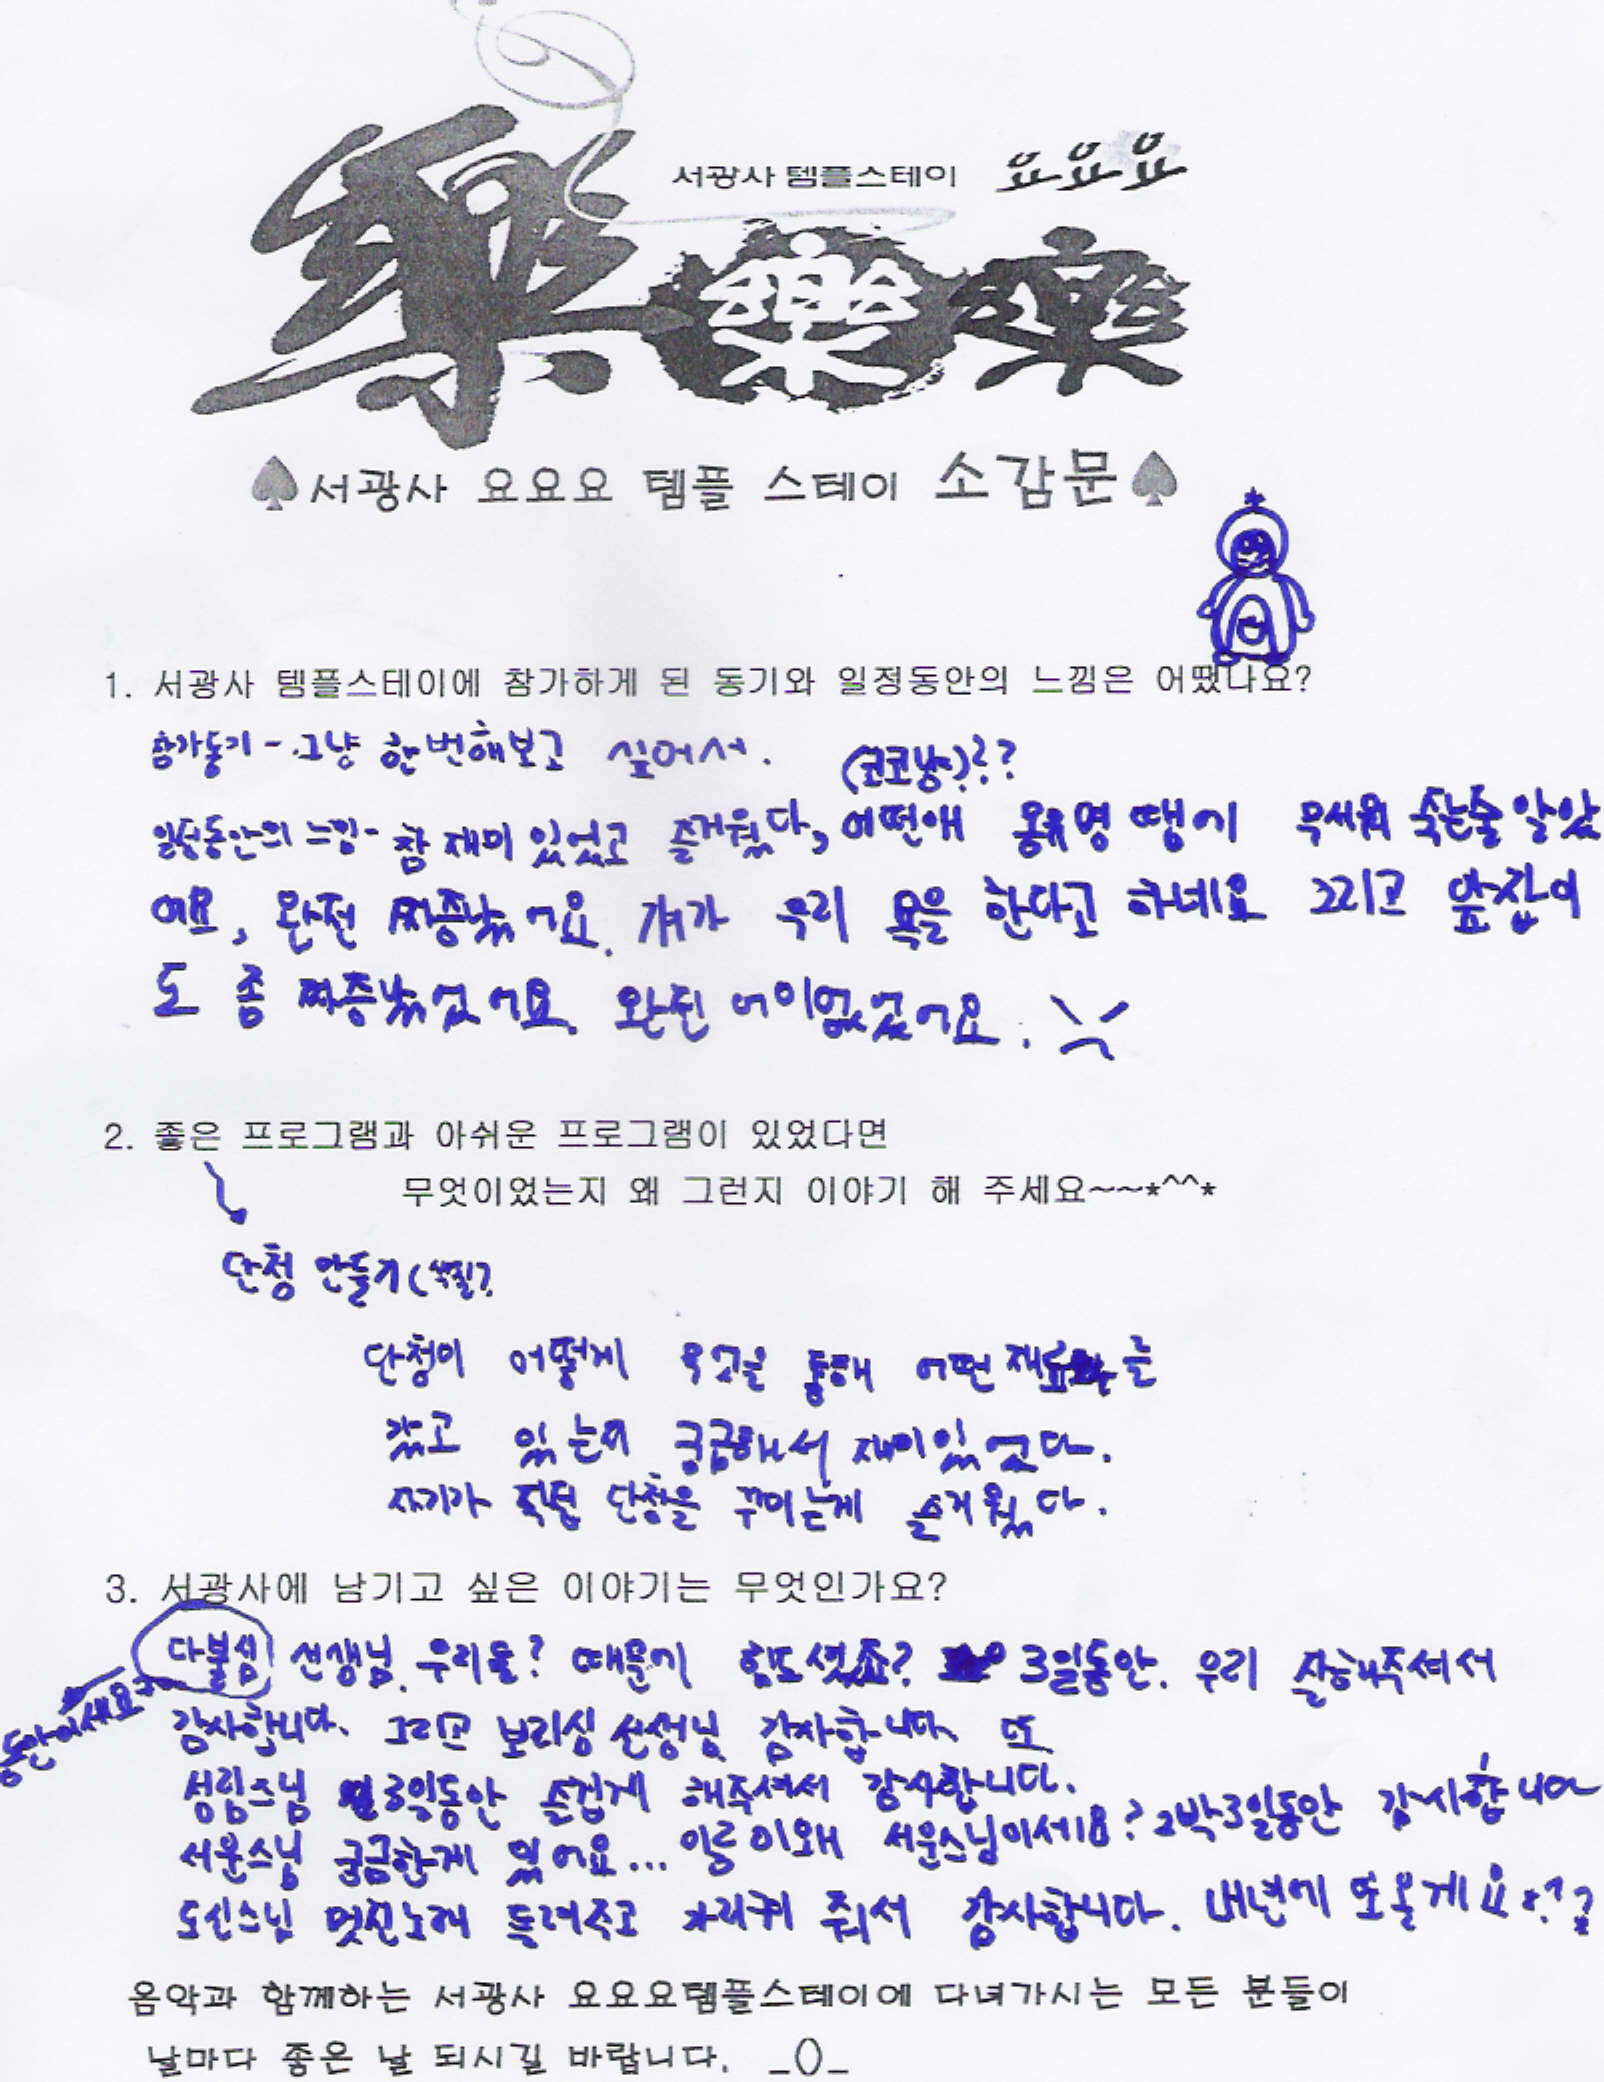 서광사 템플스테이 요요요
樂 樂 樂
♠서광사 요요요 템플 스테이 소감문♠
1. 서광사 템플스테이에 참가하게 된 동기와 일정동안의 느낌은 어땠나요?
참가동기 - 그냥 한번해보고 싶어서.
일정동안의 느낌- 참 재미 있었고 즐거웠다, 어떤애 땜에 무서워 죽는줄 알았
예요, 완전 짜증났어요. 걔가 우리 욕을 한다고 하네요 그리고 앞잡이
도 좀 짜증났었어요. 완전 어이없었어요.
2. 좋은 프로그램과 아쉬운 프로그램이 있었다면
무엇이었는지 왜 그런지 이야기 해 주세요~~*^^*
단청 만들기
단청이 어떻게 무엇을 통해 어떤 재료를
갖고 있는지 궁금해서 재미있었다.
자기가 직접 단청을 꾸미는게 즐거웠다.
3. 서광사에 남기고 싶은 이야기는 무엇인가요?
다불심 선생님. 우리들? 때문에 힘드셨죠? 3일동안. 우리 잘해주셔서
동안이세요
감사합니다. 그리고 보리심 선생님 감사합니다. 또
성림스님 3일동안 즐겁게 해주셔서 감사합니다.
서운스님 궁금한게 있어요... 이름이왜 서운스님이세요? 2박3일동안 감사합니다
도신스님 멋진노래 들려주고 가리켜 줘서 감사합니다. 내년에 또올게요
음악과 함께하는 서광사 요요요템플스테이에 다녀가시는 모든 분들이
날마다 좋은 날 되시길 바랍니다. _()_